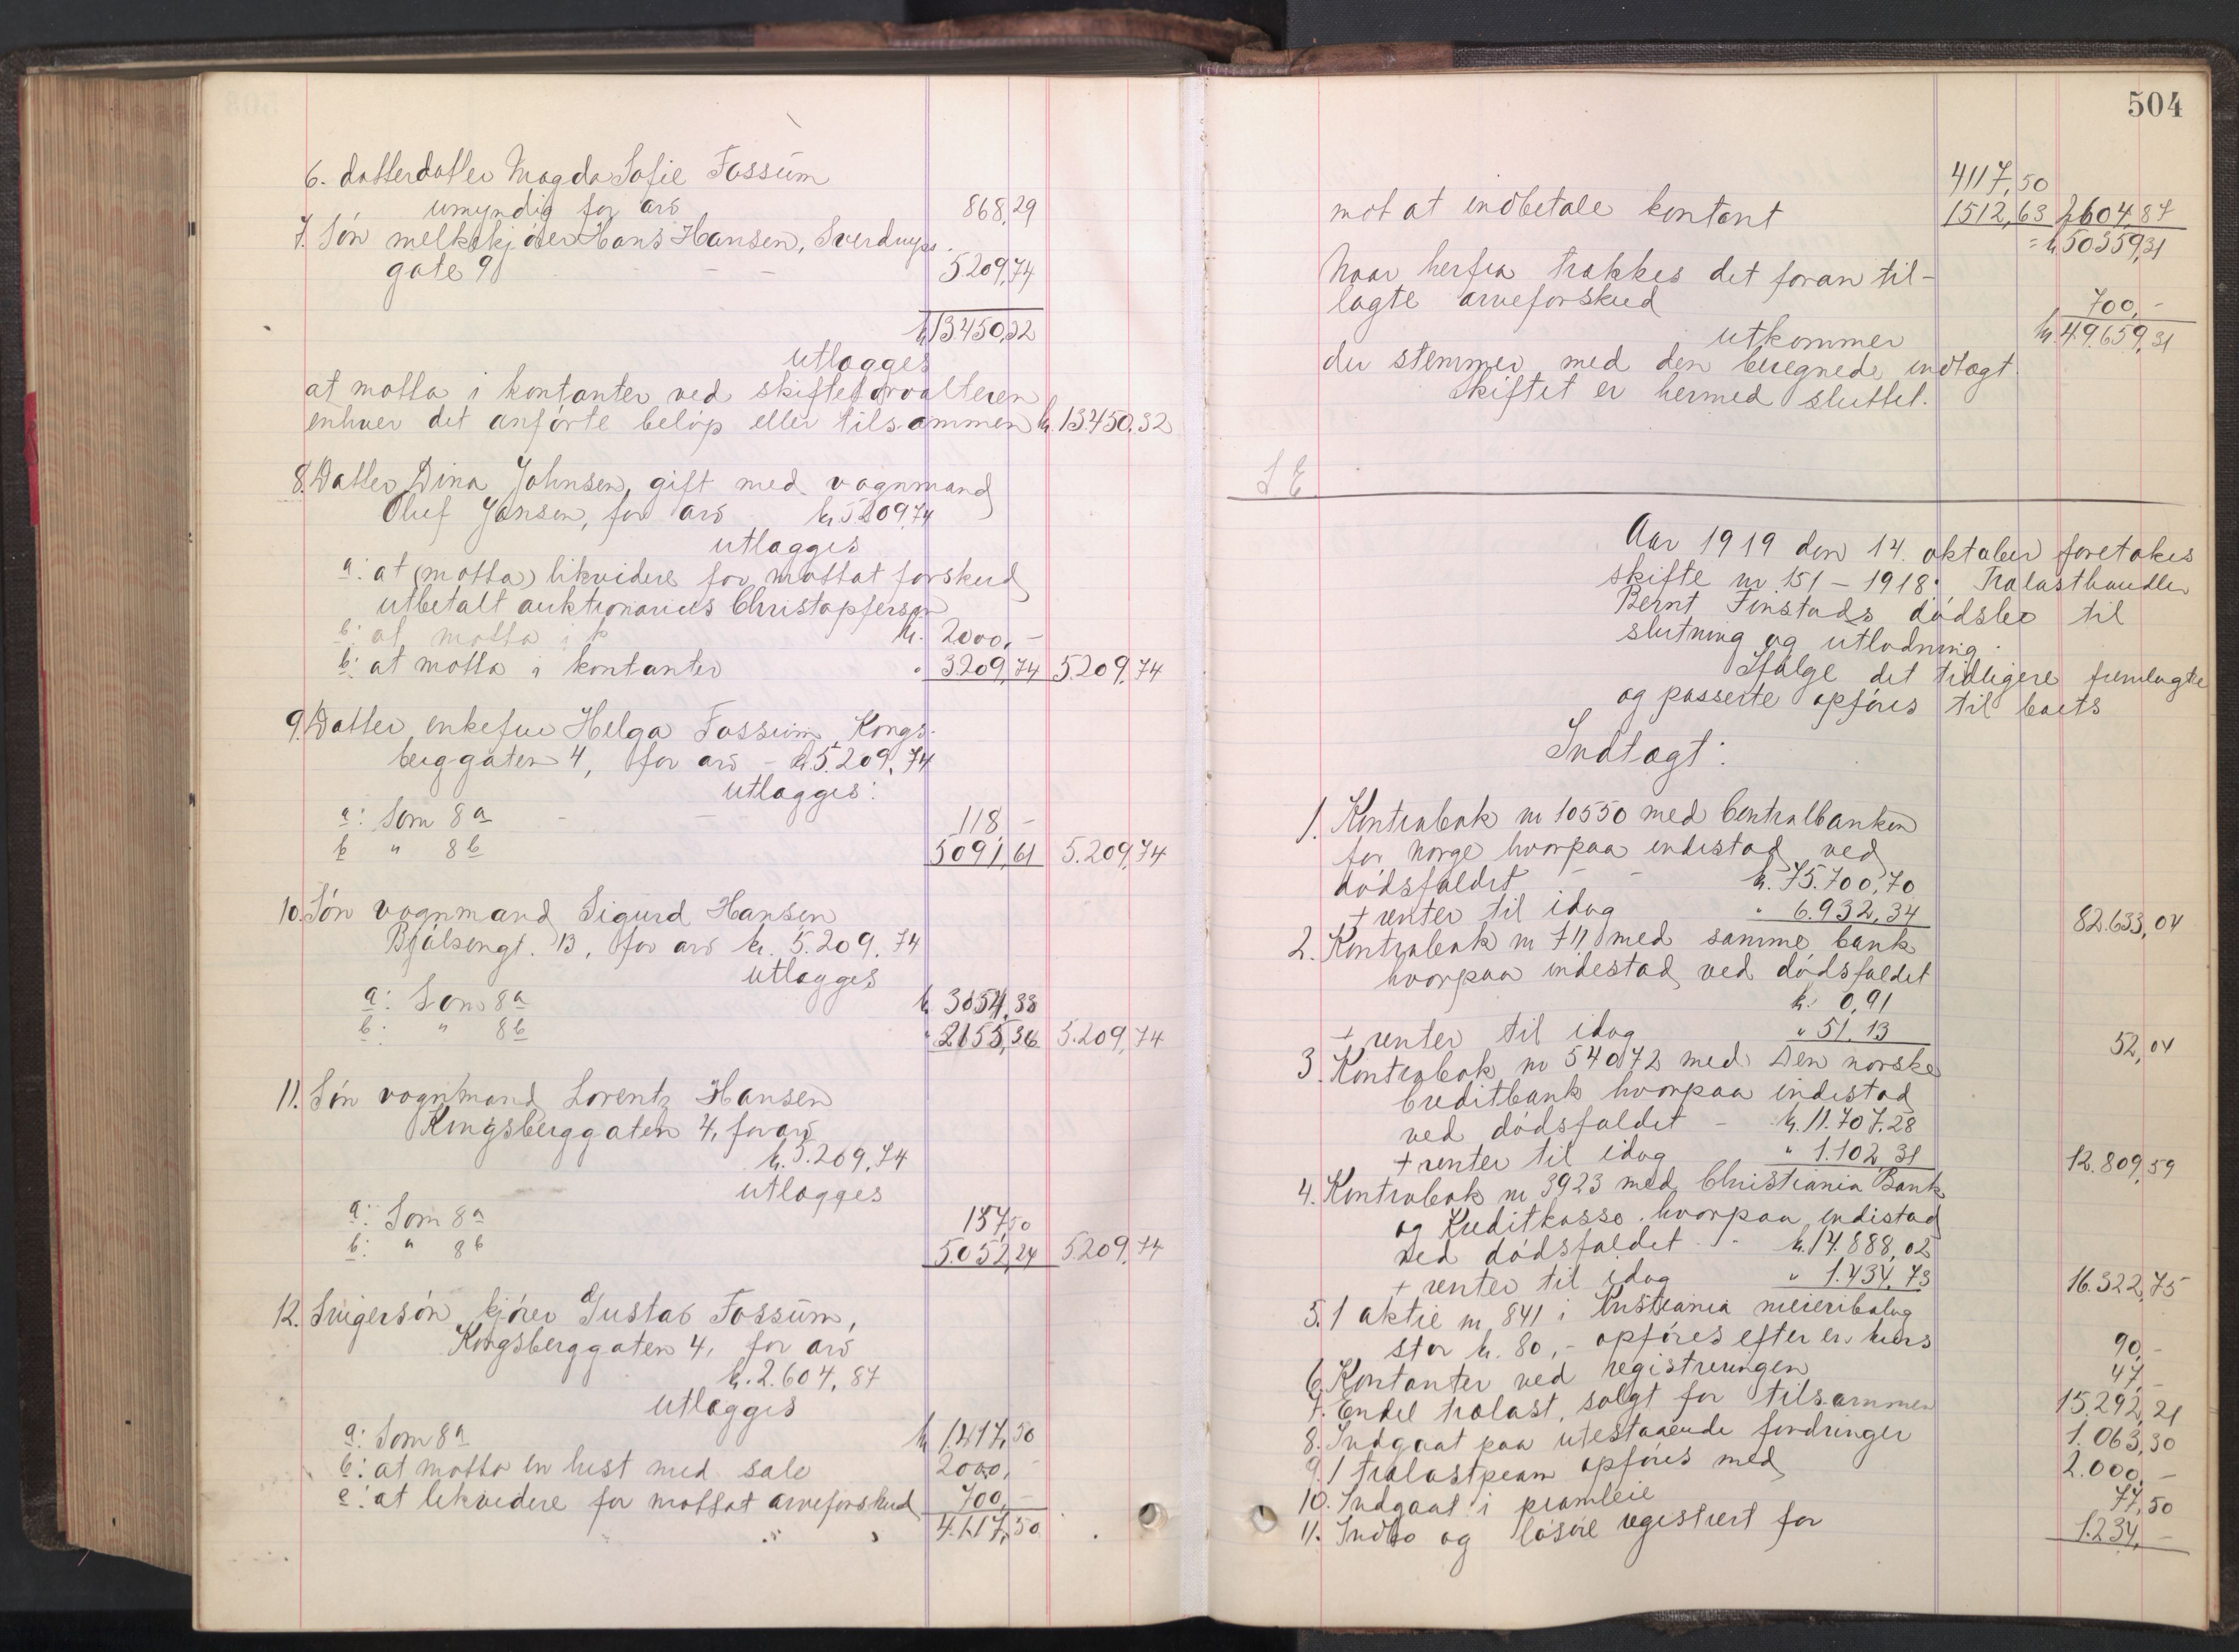 6. datterdatter Magda Sofie Fossum
umyndig for arv 868,29
7. Søn melkekjører Hans Hansen, Sverdrups-
gate 9 - - - 5209,74
kr 13450,32
utlægges
at motta i kontanter ved skifteforvalteren
enhver det anførte beløp eller tilsammen kr. 13.450,32
8. Datter Dina Johnsen, gift med vognmand
Oluf Jansen, for arv kr 5.209,74
utlægges
a: at (motta) likvidere for mottat forskud
utbetalt auktionarius Christophersen
b: at motta i k kr. 2000,-
b: at motta i kontanter " 3.209,74 5.209,74
9. Datter, enkefru Helga Fossum, Kongs-
berggaten 4, for arv - kr 5.209,74
utlægges:
a: Som 8a - - 118,-
b " 8b 5091,61 5.209,74
10. Søn vognmand Sigurd Hansen
Bjølsengt. 13, for arv kr. 5.209.74
utlægges
a: Som 8a kr 3054,38
b: " 8b " 2155,36 5.209,74
11. Søn vognmand Lorentz Hansen
Kongsberggaten 4, for arv
kr. 5.209.74
utlægges
a: Som 8a 157,50
b: " 8b 5.052,24 5.209,74
12. Svigersøn, kjører Gustav Fossum,
Kongsberggaten 4, for arv
kr. 2.604,87
utlægges
a: Som 8a kr 1.417,50
b: at motta en hest med sale 2000,-
c: at likvidere for mottat arveforskud 700,-
4.117,50
504
4117,50
mot at indbetale kontant 1512,63 2604,87
= kr 50359,31
Naar herfra trækkes det foran til-
lagte arveforskud 700,-
utkommer kr. 49.659,31
der stemmer med den beregnede indtægt.
Skiftet er hermed sluttet.
S E
Aar 1919 den 14. oktober foretokes
skifte nr 151 - 1918: Trælasthandler
Bernt Finstads dødsbo til
slutning og utlodning.
Ifølge det tidligere fremlagte
og passerte opføres til boets
Indtægt:
1. Kontrabok nr 10550 med Centralbanken
for Norge hvorpaa indestod ved
dødsfaldet - - kr. 75.700,70
+ renter til idag " 6.932,34 82.633,04
2. Kontrabok nr 711 med samme bank
hvorpaa indestod ved dødsfaldet
kr. 0,91
+ renter til idag " 51.13 52,04
3. Kontrabok nr 54072 med Den norske
Creditbank hvorpaa indestod
ved dødsfaldet - kr. 11.707,28
+ renter til idag " 1.102,31 12.809,59
4. Kontrabok nr 3923 med Christiania Bank
og Kreditkasse. hvorpaa indestod
ved dødsfaldet - kr. 14.888,02
+ renter til idag " 1.434,73 16.322,75
5. 1 aktie nr 841 i Kristiania meieribolag
stor kr. 80,- opføres efter en kurs 90,-
6. Kontanter ved registreringen 47,-
7. Endel trælast, solgt for tilsammen 15.292,21
8. Indgaat paa utestaaende fordringer 1.063,30
9. 1 trælastpram opføres med 2.000,-
10. Indgaat i pramleie 77,50
11. Indbo og løsøre registrert for 1.234,-